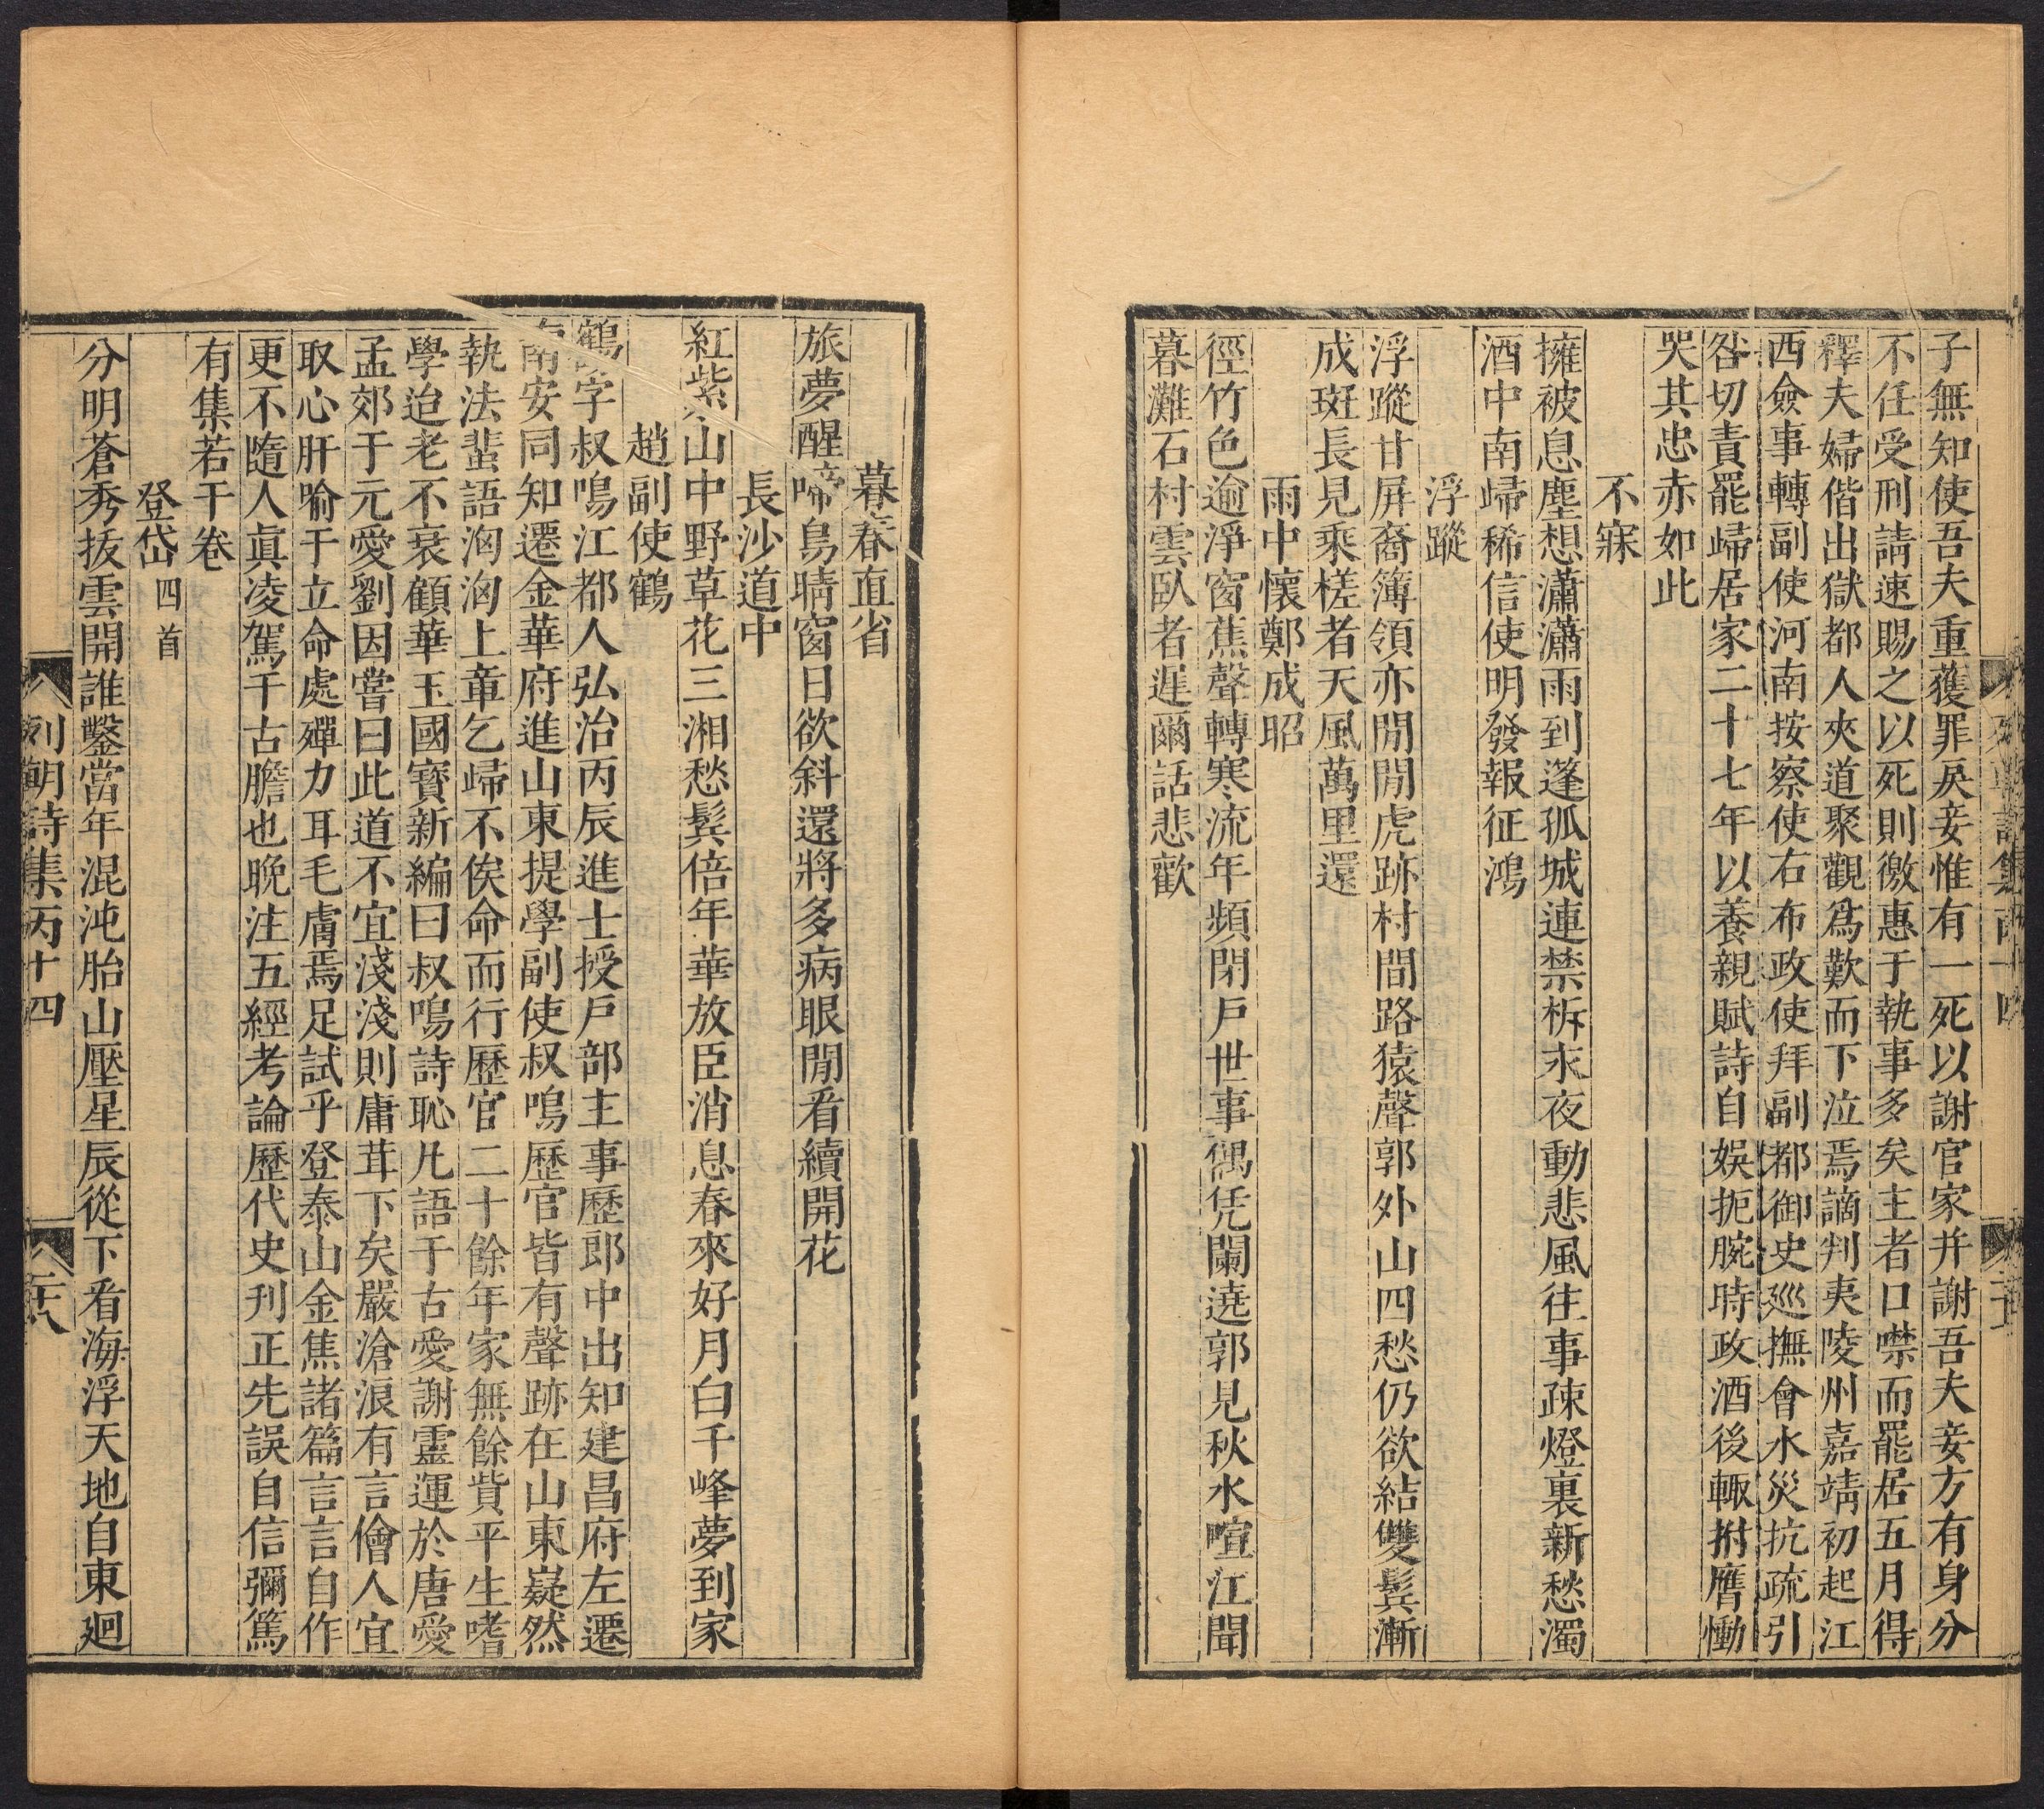 子無知使吾夫重獲罪戾妾惟有一死以謝官家并謝吾夫妾方有身分
不任受刑請速賜之以死則徼惠于執事多矣主者口噤而罷居五月得
釋夫婦偕出獄都人夾道聚觀爲歎而下泣焉謫判夷陵州嘉靖初起江
西僉事轉副使河南按察使右布政使拜副都御史巡撫會水災抗疏引
咎切責罷歸居家二十七年以養親賦詩自娛扼腕時政酒後輒拊膺慟
哭其忠赤如此
不寐
擁被息塵想瀟瀟雨到蓬孤城連禁柝永夜動悲風往事疎燈裏新愁濁
酒中南歸稀信使明發報征鴻
浮蹤
浮蹤甘屏裔簿領亦閒閒虎跡村間路猿聲郭外山四愁仍欲結雙鬂漸
成斑長見乘槎者天風萬里還
雨中懷鄭成昭
徑竹色逾淨窗蕉聲轉寒流年頻閉戸世事偶凭闌遶郭見秋水喧江聞
暮灘石村雲臥者遲爾話悲歡
暮春直省
旅夢醒啼鳥晴窗日欲斜還將多病眼閒看續開花
長沙道中
紅紫山中野草花三湘愁鬂倍年華放臣消息春來好月白千峰夢到家
趙副使鶴
鶴字叔鳴江都人弘治丙辰進士授戸部主事歷郎中出知建昌府左遷
南安同知遷金華府進山東提學副使叔鳴歷官皆有聲跡在山東嶷然
執法蜚語洶洶上章乞歸不俟命而行歷官二十餘年家無餘貲平生嗜
學迨老不衰顧華玉國寶新編曰叔鳴詩恥凡語于古愛謝靈運於唐愛
孟郊于元愛劉因嘗曰此道不宜淺淺則庸茸下矣嚴滄浪有言儈人宜
取心肝喻于立命處殫力耳毛膚焉足試乎登泰山金焦諸篇言言自作
更不隨人眞凌駕千古膽也晚注五經考論歷代史刊正先誤自信彌篤
有集若干卷
登岱四首
分明蒼秀拔雲開誰鑿當年混沌胎山壓星辰從下看海浮天地自東廻
列朝詩集丙十四
二十八